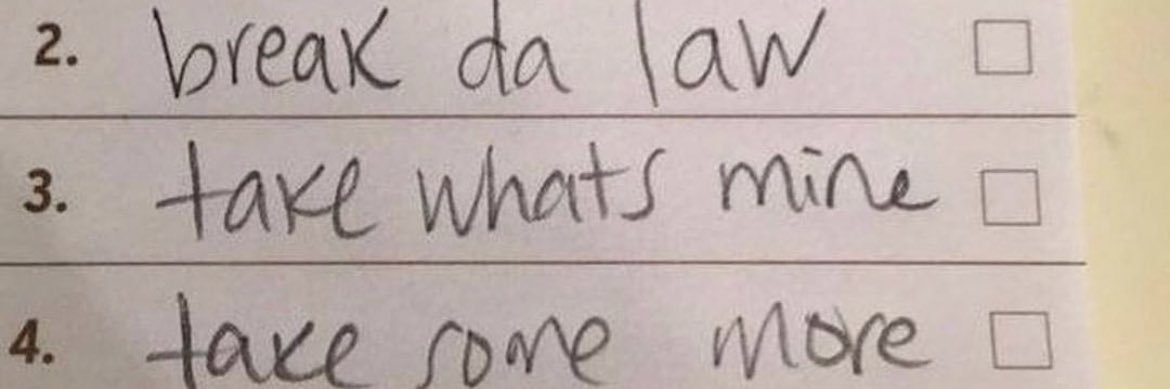 2. break da law
3. take whats mine
4. take some more